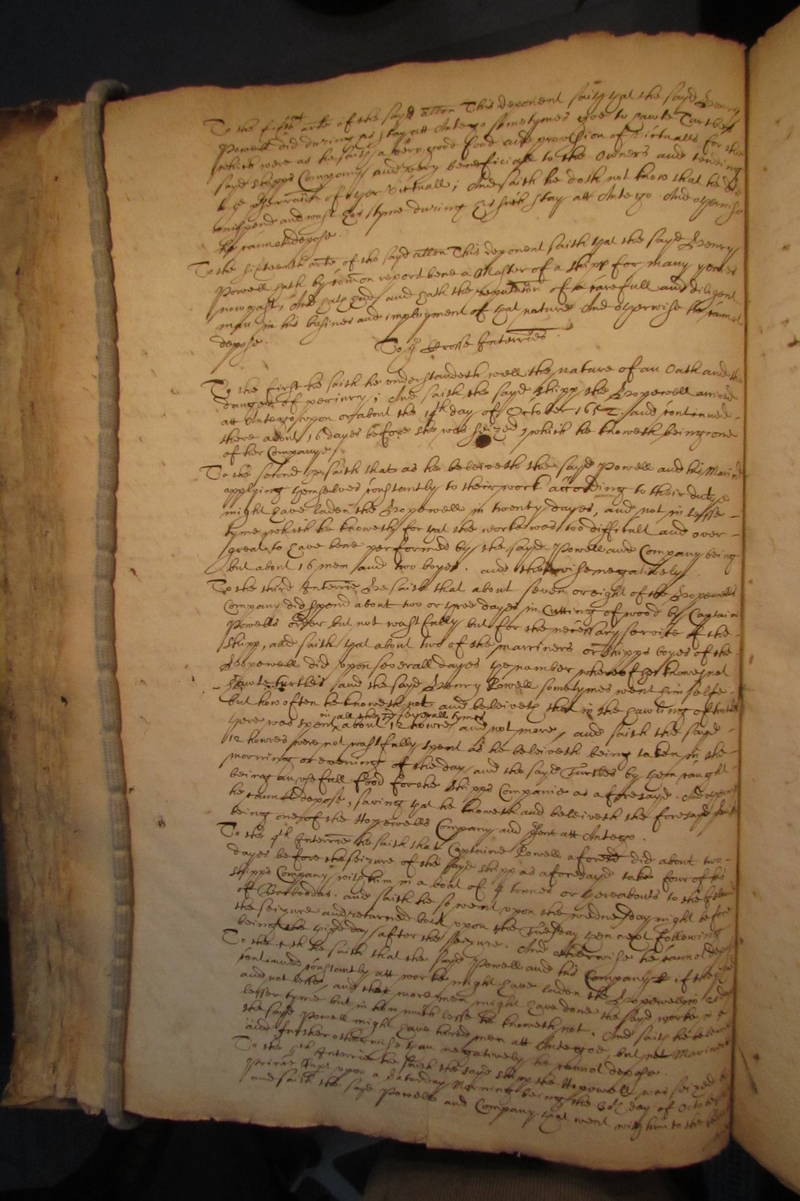 To the fifth arte of the sayd allon This deponent saith that the sayd Henry
Powell did during his stay att Antego sometymes goe to Cawte Turtles
which were as he saith a very good food and provision of victualls for the
sayd shipps Company and very beneficiall to the Owners and
preservation of their victuall; And saith he doth not know that he did
misspend and wast his tyme during his stay att Antego And otherwise
he cannot depose.
To the sixteenth arte of the sayd allon This deponent saith that the sayd Henry
Powell hath by common report bene a Master of a shipp for many yeares
now past, And hath and hath the reputation of a carefull and diligent
man in his busines and imployment of that nature And otherwise he cannot
depose.
To the Crosse Interries
To the first he saith he understandeth well the nature of an Oath and the
danger of periury; And saith the sayd shipp the Hopewell arrived
att Antego upon or about the 14th day of October 1652 and continued
there about 16 dayes before she was seized which he knoweth being one
of her Companye
To the second he saith that as he beleeveth the sayd Powell and his Marin
applying themselves constantly to their work according to their dutye
might have laden the Hopewell in twenty dayes, and not in lesse
tyme which he knoweth for that the worke was too difficult and over
great to have bene performed by the sayd Powell and Company being
but about 16 men and two boyes. and otherwise negatively
To the third Interrie he saith that about seven or eight of the Hopewells
Company did spend about two or three dayes in Cutting of wood by Captain
Powells Order but not wastfully but for the necessary service of the
shipp, and saith that about two of the marriners or shipps boyes of the
Hopewell did upon severall dayes the number whereof he knoweth not
Cawte turtles and the sayd Henry Powell sometymes went him selfe
but how often he knoweth not and beleiveth that in the Cawting of turtles
in all the severall tymes
there was spent about 12 howres and not more, and saith the sayd
12 howres were not wastfully spent as he beleiveth being taken in the
morning or evening of the day, and the sayd Turtles by them caught
being an usefull food for the shipps Companie as aforesayd. And otherwise
he cannot depose, saving that he knoweth and beleiveth the foresayd
being one of the Hopewells Company and there att Antego.
To the 4th Interrie he saith that Captaine Powell aforesd did about two
dayes before the seizure of the sayd shipp as aforesayd take four of his
shipps Company with him in a boat of 4 tonnes or thereabouts to the
of Barbadas: and saith he so went upon the wednesday night before
the seizure and returned back upon the Tuesday then next following
being the third day after the seizure. And otherwise he cannot depose
To the 5th he saith that the sayd Powell and his Company if they had
continued constantly att worke might have laden the Hopewell in 20 dayes
and not lesse, and that more men might have done the sayd worke in a
lesser tyme but in how much lesse he knoweth not. And saith he beleiveth
the sayd Powell might have hired men att Antegoe, but not Marriners
and further otherwise than negatively he cannot depose.
To the 6th Interrie he saith the sayd shipp the Hopewell was seized by
Prince upon a Saturday Morning being the 30th day of October
and saith the sayd Powell and Company that went with him to the